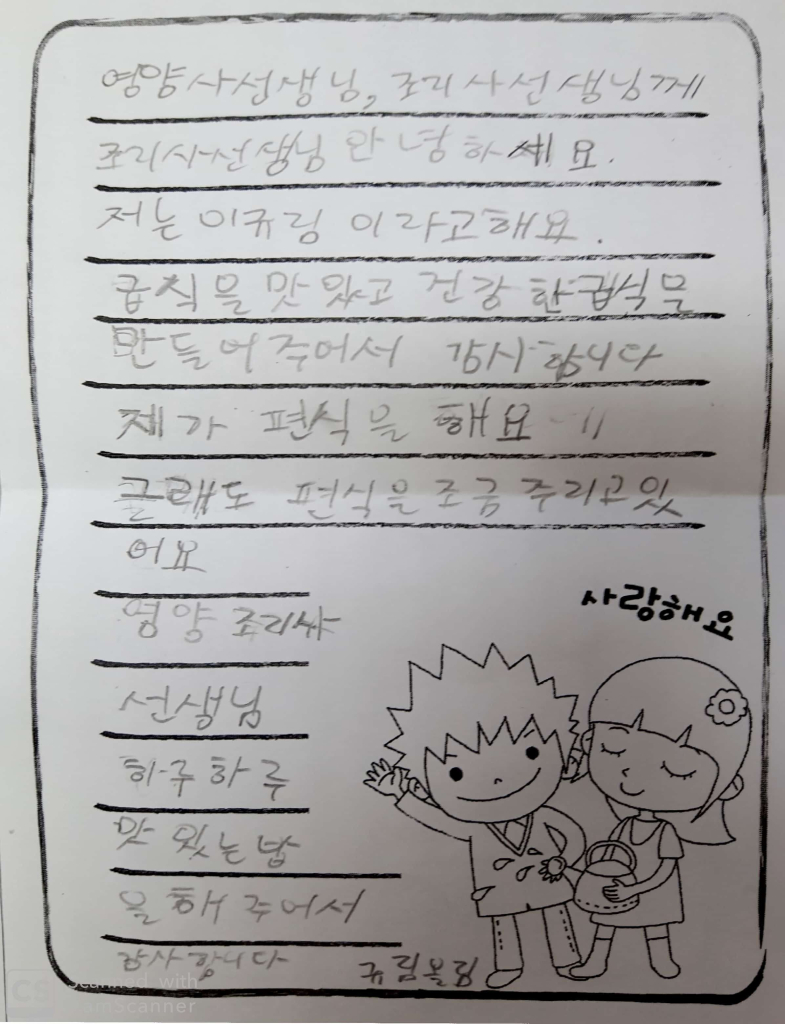 영양사선생님, 조리사선생님께
조리사선생님 안녕하세요.
저는 이규림 이라고해요.
급식을 맛있고 건강한급식을
만들어주어서 감사합니다
제가 편식을 해요
글래도 편식을조금주리고있
어요
영양 조리싸
선생님
하구하루
맛있는밥
을해주어서
감사합니다
규림올림
사랑해요
CS Scanned with
CamScanner